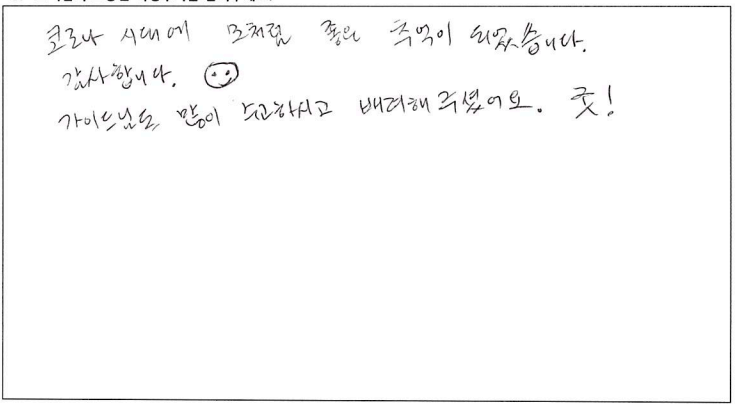 코로나 시대에 모처럼 좋은 추억이 되었습니다.
감사합니다.
가이드님도 많이 수고하시고 배려해주셨어요. 굿!